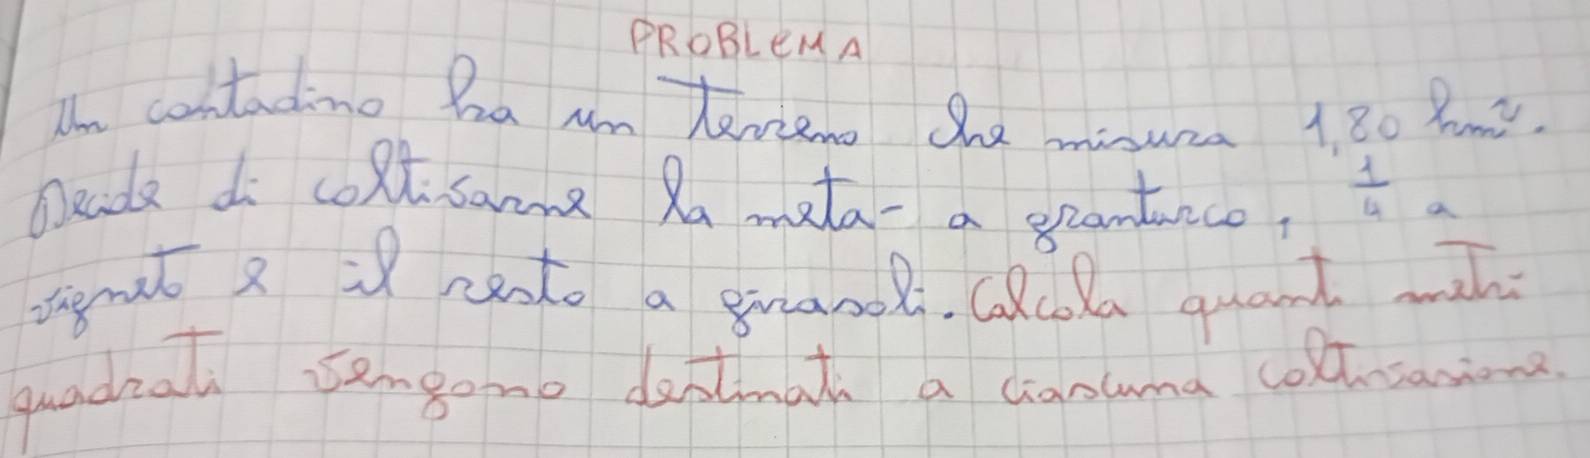 PROBLEMA
Un contadino ha un terreno che misura 1,80 hm².
Decide di coltivarne la metà a granturco, 1/4 a
vigneto e il resto a girasoli. Calcola quanti metri
quadrati vengono destinati a ciascuna coltivazione.